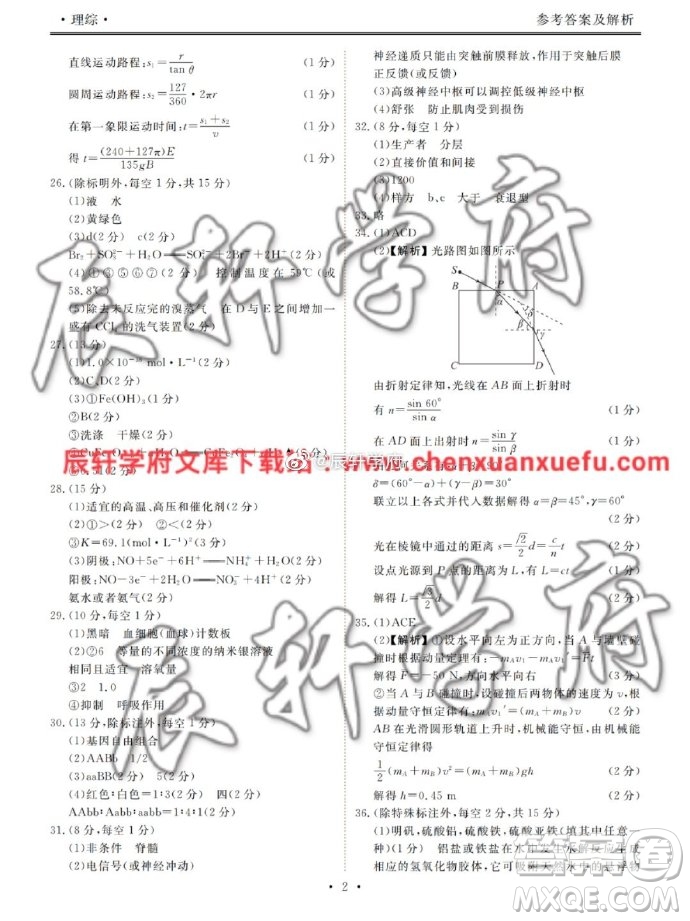 ·理综·
参考答案及解析
直线运动路程:s₁=r/tan θ (1分)
圆周运动路程:s₂=127/360·2πr (1分)
在第一象限运动时间:t=(s₁+s₂)/v (1分)
得 t=(240+127π)E/135gB (1分)
26.(除标明外,每空1分,共15分)
(1)液 水
(2)黄绿色
(3)d(2分) c(2分)
(4)①③④②⑤(2分) 控制温度在59℃(或
58.8℃)(2分)
(5)除去未反应完的溴蒸气 在D与E之间增加一
盛有CCl₄的洗气装置(2分)
27.(13分)
(2)C、D
(3)①Fe(OH)₂(2分)
②B(2分)
③洗涤 干燥(2分)
28.(15分)
(1)适宜的高温、高压和催化剂(2分)
(2)①>(2分) ②>(2分)
③K=69.1(2分)
(3)阴极:NO+5e⁻+6H⁺══NH₄⁺+H₂O(2分)
阳极:NO-3e⁻+2H₂O══NO₃⁻+4H⁺(2分)
氨水或者氨气(2分)
29.(10分,每空1分)
(1)黑暗 血细胞(血球)计数板
(2)②6 等量的不同浓度的纳米银溶液
相同且适宜 溶氧量
③2 1.0
④抑制 呼吸作用
30.(13分,除标注外,每空2分)
(1)基因自由组合
(2)AABb 1/2
(3)aaBB(2分) 3(2分)
(4)红色:白色=1:3(2分) 四(2分)
AAbb:Aabb:aabb=1:2:1(2分)
31.(8分,每空1分)
(1)非条件 脊髓
(2)电信号(或神经冲动)
神经递质只能由突触前膜释放,作用于突触后膜
正反馈(或反馈)
(3)高级神经中枢可以调控低级神经中枢
(4)舒张 防止肌肉受到损伤
32.(8分,每空1分)
(1)生产者 分层
(2)直接价值和间接
(3)1200
(4)样方 b、c 大于 衰退型
33.略
34.(1)ACD
(2)【解析】光路图如图所示
S
B P A
α β γ δ
C D
由折射定律知,光线在AB面上折射时
有 n=sin 60°/sin α (1分)
在AD面上出射时 n=sin γ/sin β (1分)
δ=(60°-α)+(γ-β) (1分)
联立以上各式并代入数据解得 α=β=45°,γ=60°
(2分)
光在棱镜中通过的距离 s=√2/2 d=c/n t (2分)
设点光源到P点的距离为L,有L=ct (1分)
解得 L=√3/2 d (2分)
35.(1)ACE
(2)【解析】①设水平向右为正方向,当A与墙壁碰
撞时根据动量定理有:mₐv₁′-mₐv₁=F̄t (2分)
解得F̄=-50 N,方向水平向右 (2分)
②设A、B碰撞时,设碰撞后两物体的速度为v,根
据动量守恒定律有:mₐv₁′=(mₐ+m_B)v(2分)
AB在光滑圆形轨道上升时,机械能守恒,由机械能
守恒定律得
1/2(mₐ+m_B)v²=(mₐ+m_B)gh (2分)
解得 h=0.45 m (2分)
36.(除特殊标注外,每空2分,共15分)
(1)明矾,硫酸铝,硫酸铁,硫酸亚铁(填其中任意
一种) 铝盐或铁盐在水中发生水解反应生成
相应的氢氧化物胶体,它可吸附天然水中的悬浮物
辰轩学府
辰轩学府文库下载站:www.chenxuanxuefu.com
@辰轩学府
· 2 ·